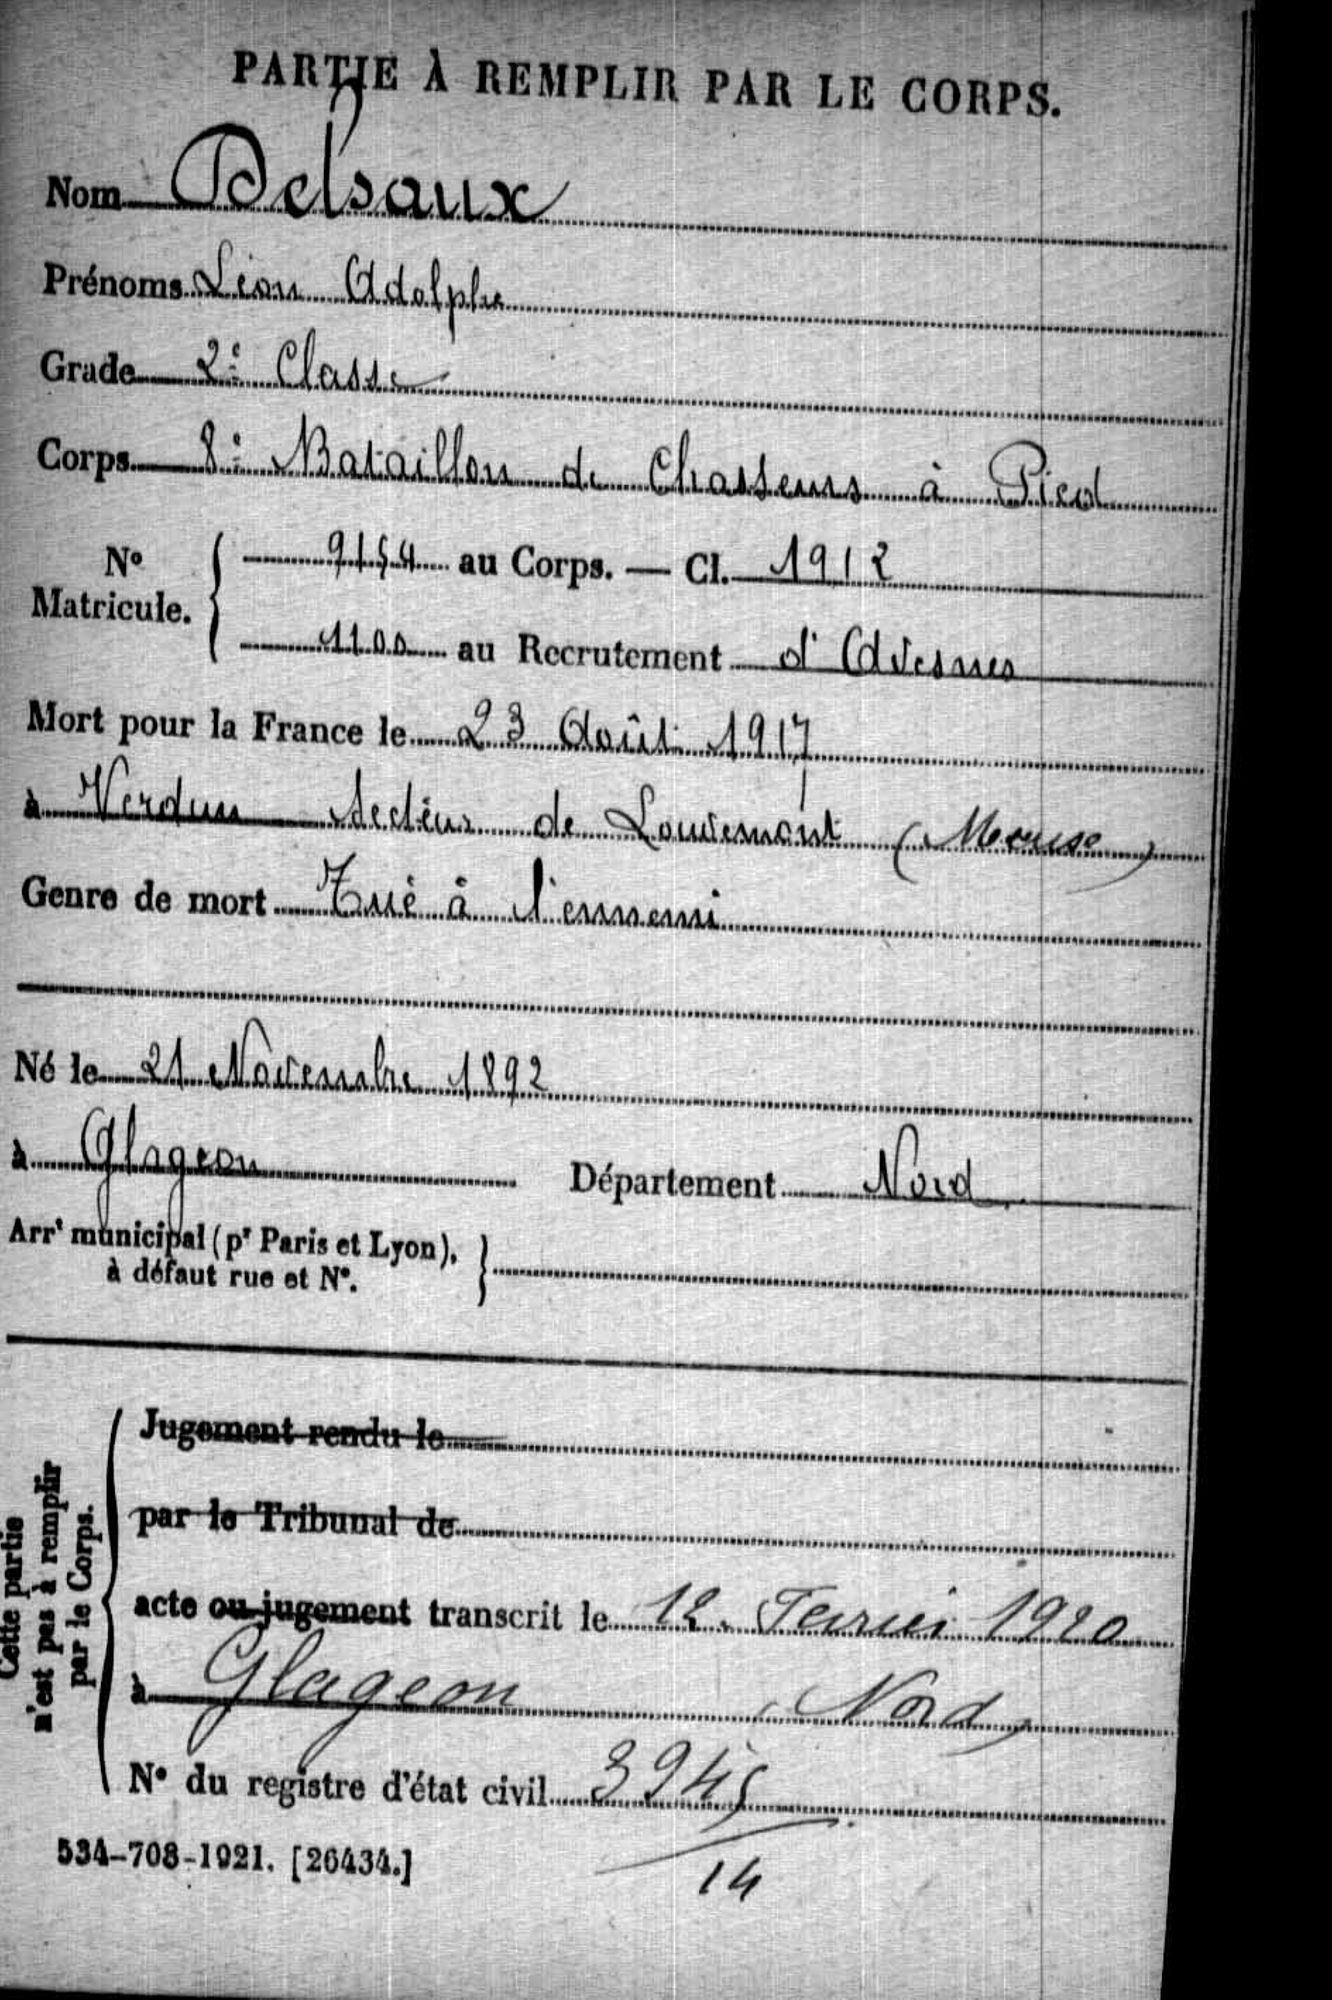 PARTIE À REMPLIR PAR LE CORPS.
Nom Delsaux
Prénoms Léon Adolphe
Grade 2e Classe
Corps 8e Bataillon de Chasseurs à Pied
No Matricule. { 9154 au Corps. — Cl. 1912
1100 au Recrutement d'Avesnes
Mort pour la France le 23 Août 1917
à Verdun Secteur de Louvemont (Meuse)
Genre de mort Tué à l'ennemi
Né le 21 Novembre 1892
à Glageon Département Nord
Arrt municipal (pr Paris et Lyon),
à défaut rue et N°. }
Cette partie
n'est pas à remplir
par le Corps.
Jugement rendu le
par le Tribunal de
acte ou jugement transcrit le 12 Février 1920
à Glageon (Nord)
N° du registre d'état civil 3945
14
534-708-1921. [26434.]